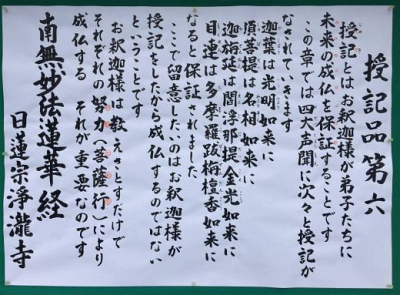 授記品第六
授記とはお釈迦様が弟子たちに
未来の成仏を保証することです
この章では四大声聞に次々と授記が
なされていきます
迦葉は光明如来に
須菩提は名相如来に
迦旃延は閻浮那提金光如来に
目連は多摩羅跋栴檀香如来に
なると保証されました
ここで留意したいのはお釈迦様が
授記をしたから成仏するのではない
ということです
お釈迦様は教えさとすだけで
それぞれの努力(菩薩行)により
成仏する それが重要なのです
南無妙法蓮華経
日蓮宗浄瀧寺